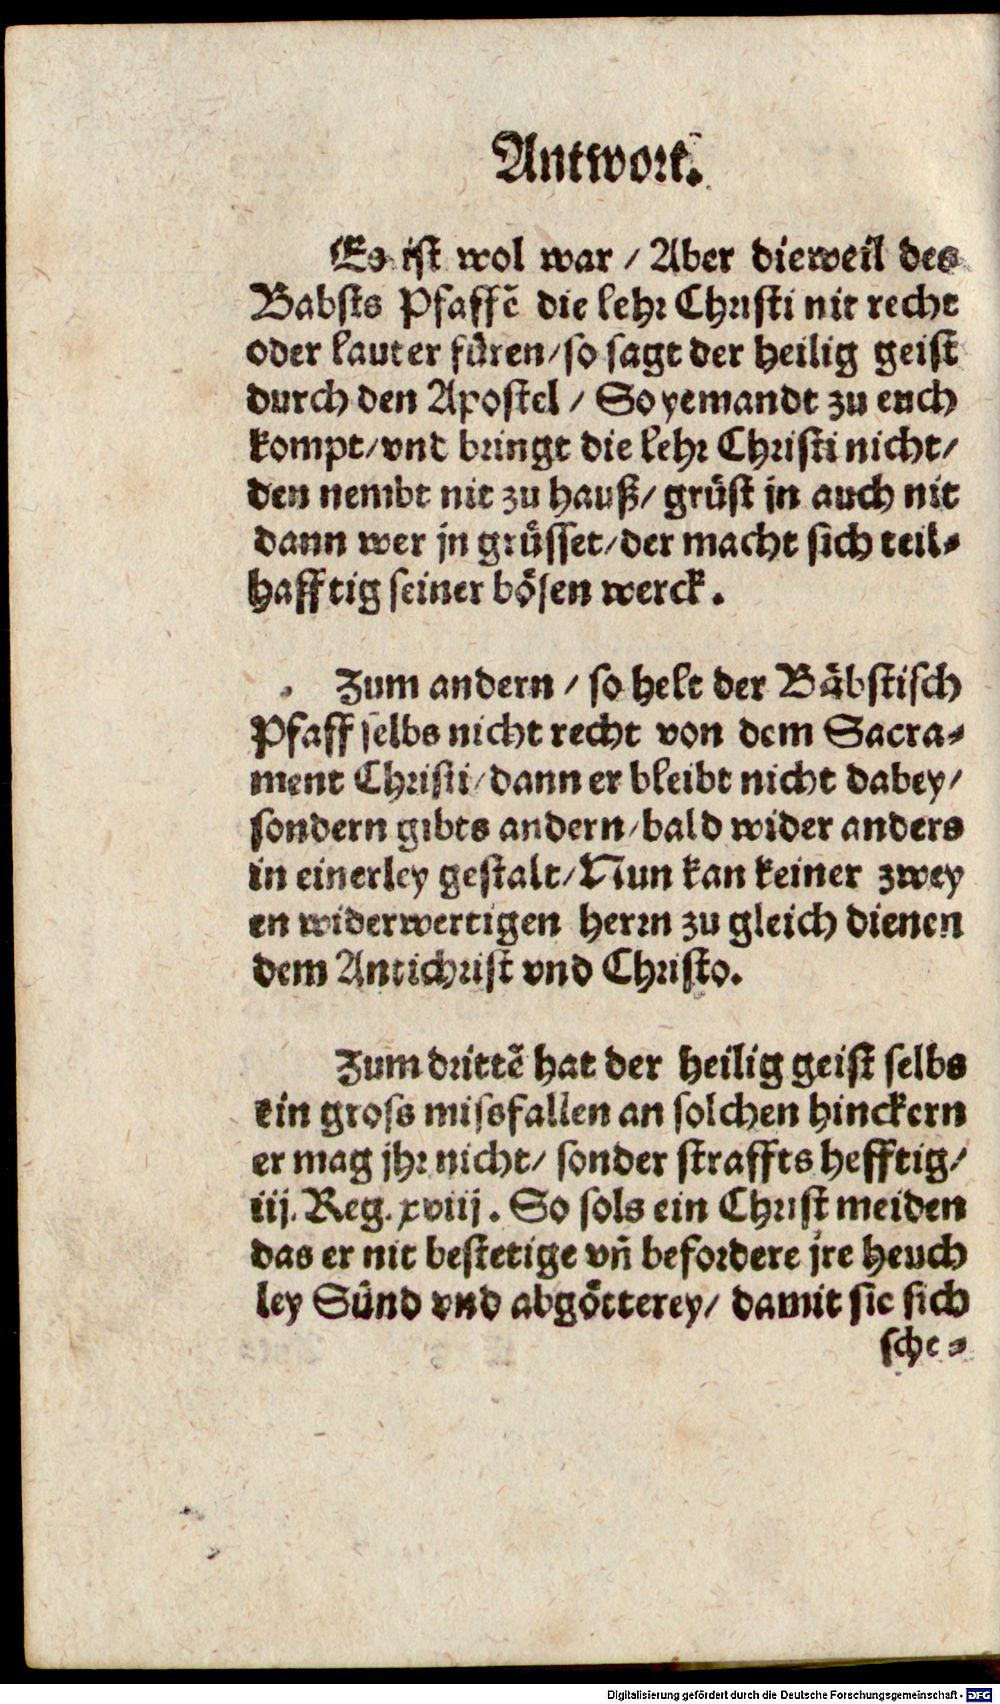 Antwort.
Es ist wol war / Aber dieweil des
Babsts Pfaffē die lehr Christi nit recht
oder lauter füren / so sagt der heilig geist
durch den Apostel / So yemandt zu euch
kompt / vnd bringt die lehr Christi nicht /
den nembt nit zu hauß / grüst jn auch nit
dann wer jn grüsset / der macht sich teil-
hafftig seiner bösen werck.
Zum andern / so helt der Bäbstisch
Pfaff selbs nicht recht von dem Sacra-
ment Christi / dann er bleibt nicht dabey /
sondern gibts andern / bald wider anders
in einerley gestalt / Nun kan keiner zwey
en widerwertigen herrn zu gleich dienen
dem Antichrist vnd Christo.
Zum drittē hat der heilig geist selbs
ein gross missfallen an solchen hinckern
er mag jhr nicht / sonder straffts hefftig /
iij. Reg. xviij. So sols ein Christ meiden
das er nit bestetige vñ befordere jre heuch
ley Sünd vnd abgötterey / damit sie sich
sche-
Digitalisierung gefördert durch die Deutsche Forschungsgemeinschaft - DFG